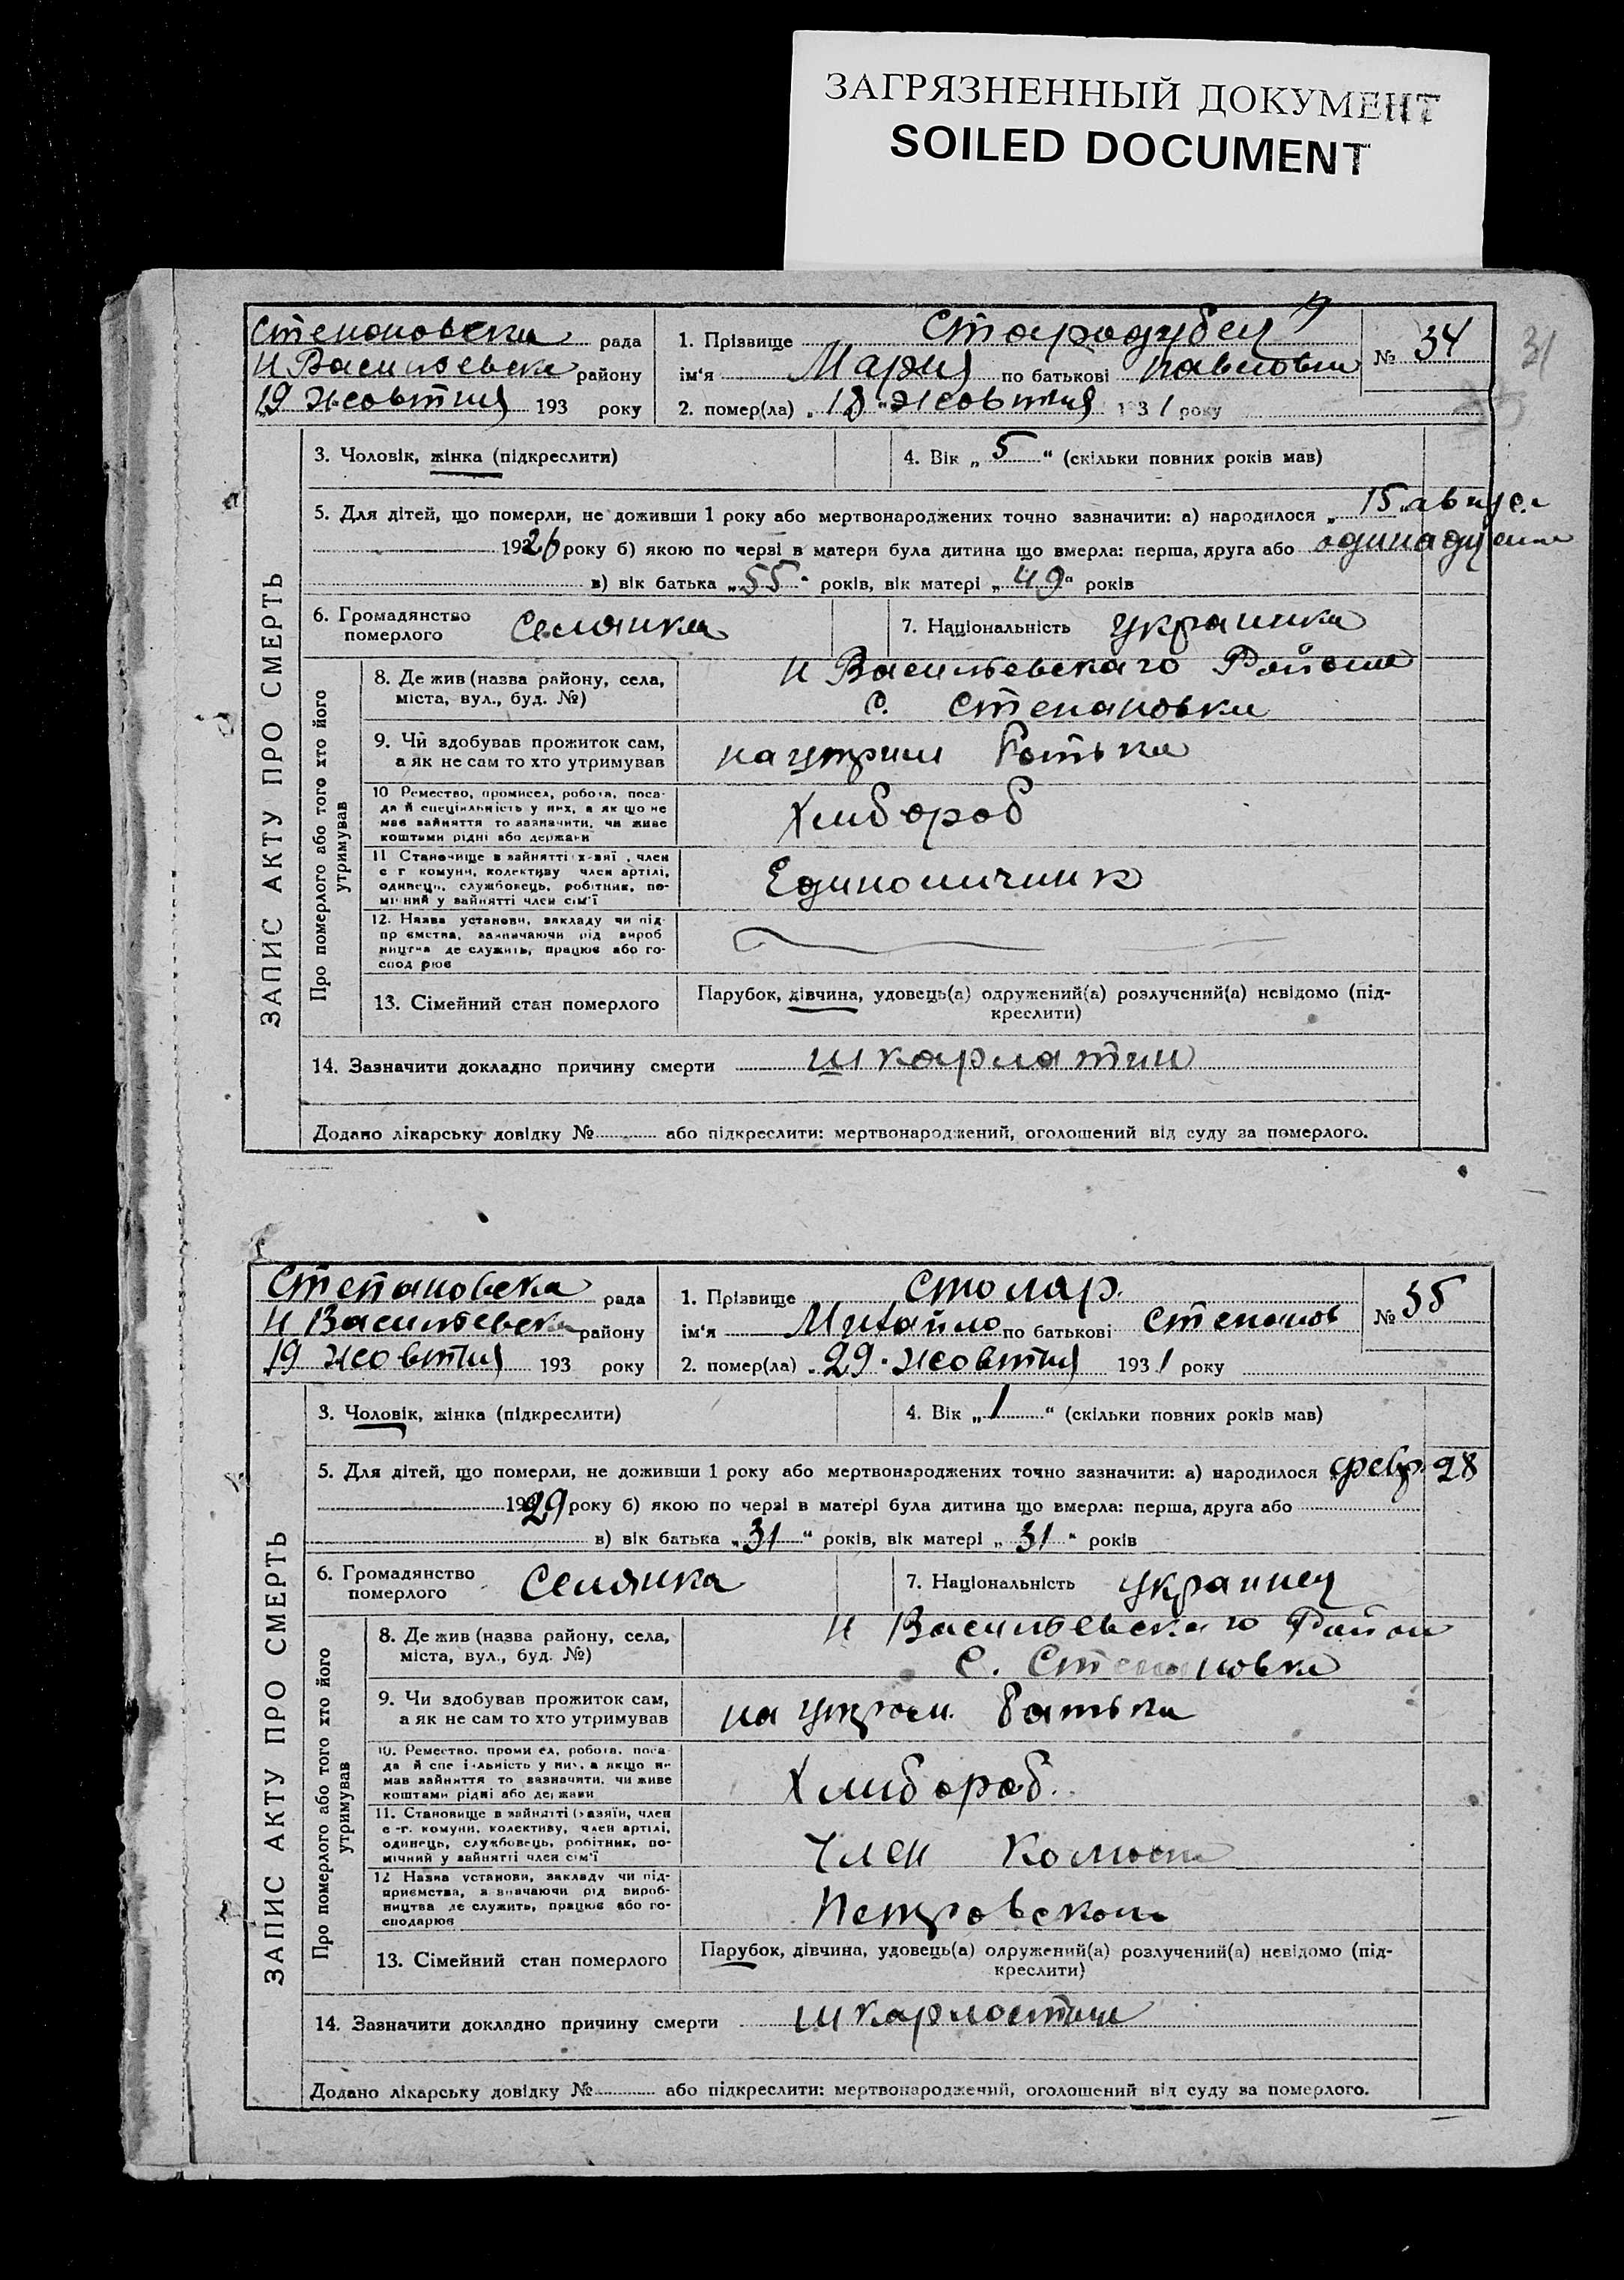 ЗАГРЯЗНЕННЫЙ ДОКУМЕНТ
SOILED DOCUMENT
31
Степановска рада
Н Васильевска району
19 жовтня 193 року
1. Прізвище Стародубец
ім'я Мария по батькові Павловна
2. помер(ла) „ 18 " жовтня 1931 року
№ 34
3. Чоловік, жінка (підкреслити)
4. Вік „ 5 " (скільки повних років мав)
5. Для дітей, що померли, не доживши 1 року або мертвонароджених точно зазначити: а) народилося „ 15
1926 року б) якою по черзі в матери була дитина що вмерла: перша, друга або
в) вік батька „ 55 " років, вік матері „ 49 " років
6. Громадянство
померлого
Селянка
7. Національність украинка
ЗАПИС АКТУ ПРО СМЕРТЬ
Про померлого або того хто його
утримував
8. Де жив (назва району, села,
міста, вул., буд. №)
Н Васильевскаго Района
с. Степановки
9. Чи здобував прожиток сам,
а як не сам то хто утримував
на утрим Батька
10 Ремество, промисел, робота, поса-
да й спеціяльність у них, а як що не
мав зайняття то зазначити, чи живе
коштами рідні або держави
Хлибороб
11 Становище в зайнятті х-зяї , член
с г комуни, колективу член артілі,
одинець, службовець, робітник, по-
мічний у зайнятті член сім'ї
Единоличник
12. Назва установи, закладу чи під-
пр ємства, зазначаючи рід вироб
ництва де служить, працює або го-
спод рює
13. Сімейний стан померлого
Парубок, дівчина, удовець(а) одружений(а) розлучений(а) невідомо (під-
креслити)
14. Зазначити докладно причину смерти шкарлатин
Додано лікарську довідку № або підкреслити: мертвонароджений, оголошений від суду за померлого.
Степановска рада
Н Васильевска району
19 жовтня 193 року
1. Прізвище Столяр.
ім'я Михайло по батькові Степанов
2. помер(ла) „ 29 " жовтня 1931 року
№ 35
3. Чоловік, жінка (підкреслити)
4. Вік „ 1 " (скільки повних років мав)
5. Для дітей, що померли, не доживши 1 року або мертвонароджених точно зазначити: а) народилося „ февр. 28
1929 року б) якою по черзі в матері була дитина що вмерла: перша, друга або
в) вік батька „ 31 " років, вік матері „ 31 " років
6. Громадянство
померлого
Селянка
7. Національність украинец
ЗАПИС АКТУ ПРО СМЕРТЬ
Про померлого або того хто його
утримував
8. Де жив (назва району, села,
міста, вул., буд. №)
Н Васильевскаго Район
с. Степановка
9. Чи здобував прожиток сам,
а як не сам то хто утримував
на утрим. Батька
10. Ремество, проми ел, робота, поса-
да й спе і льність у них, а якщо н
мав зайняття то зазначити, чи живе
коштами рідні або держави
Хлибороб.
11. Становище в зайнятті (хазяїн, член
с -г. комуни, колективу, член артілі,
одинець, службовець, робітник, по-
мічний у зайнятті член сім'ї
Член
12 Назва установи, закладу чи під-
приємства, з значаючи рід вироб-
ництва де служить, працює або го-
сподарює
13. Сімейний стан померлого
Парубок, дівчина, удовець(а) одружений(а) розлучений(а) невідомо (під-
креслити)
14. Зазначити докладно причину смерти шкарлатини
Додано лікарську довідку № або підкреслити: мертвонароджений, оголошений від суду за померлого.